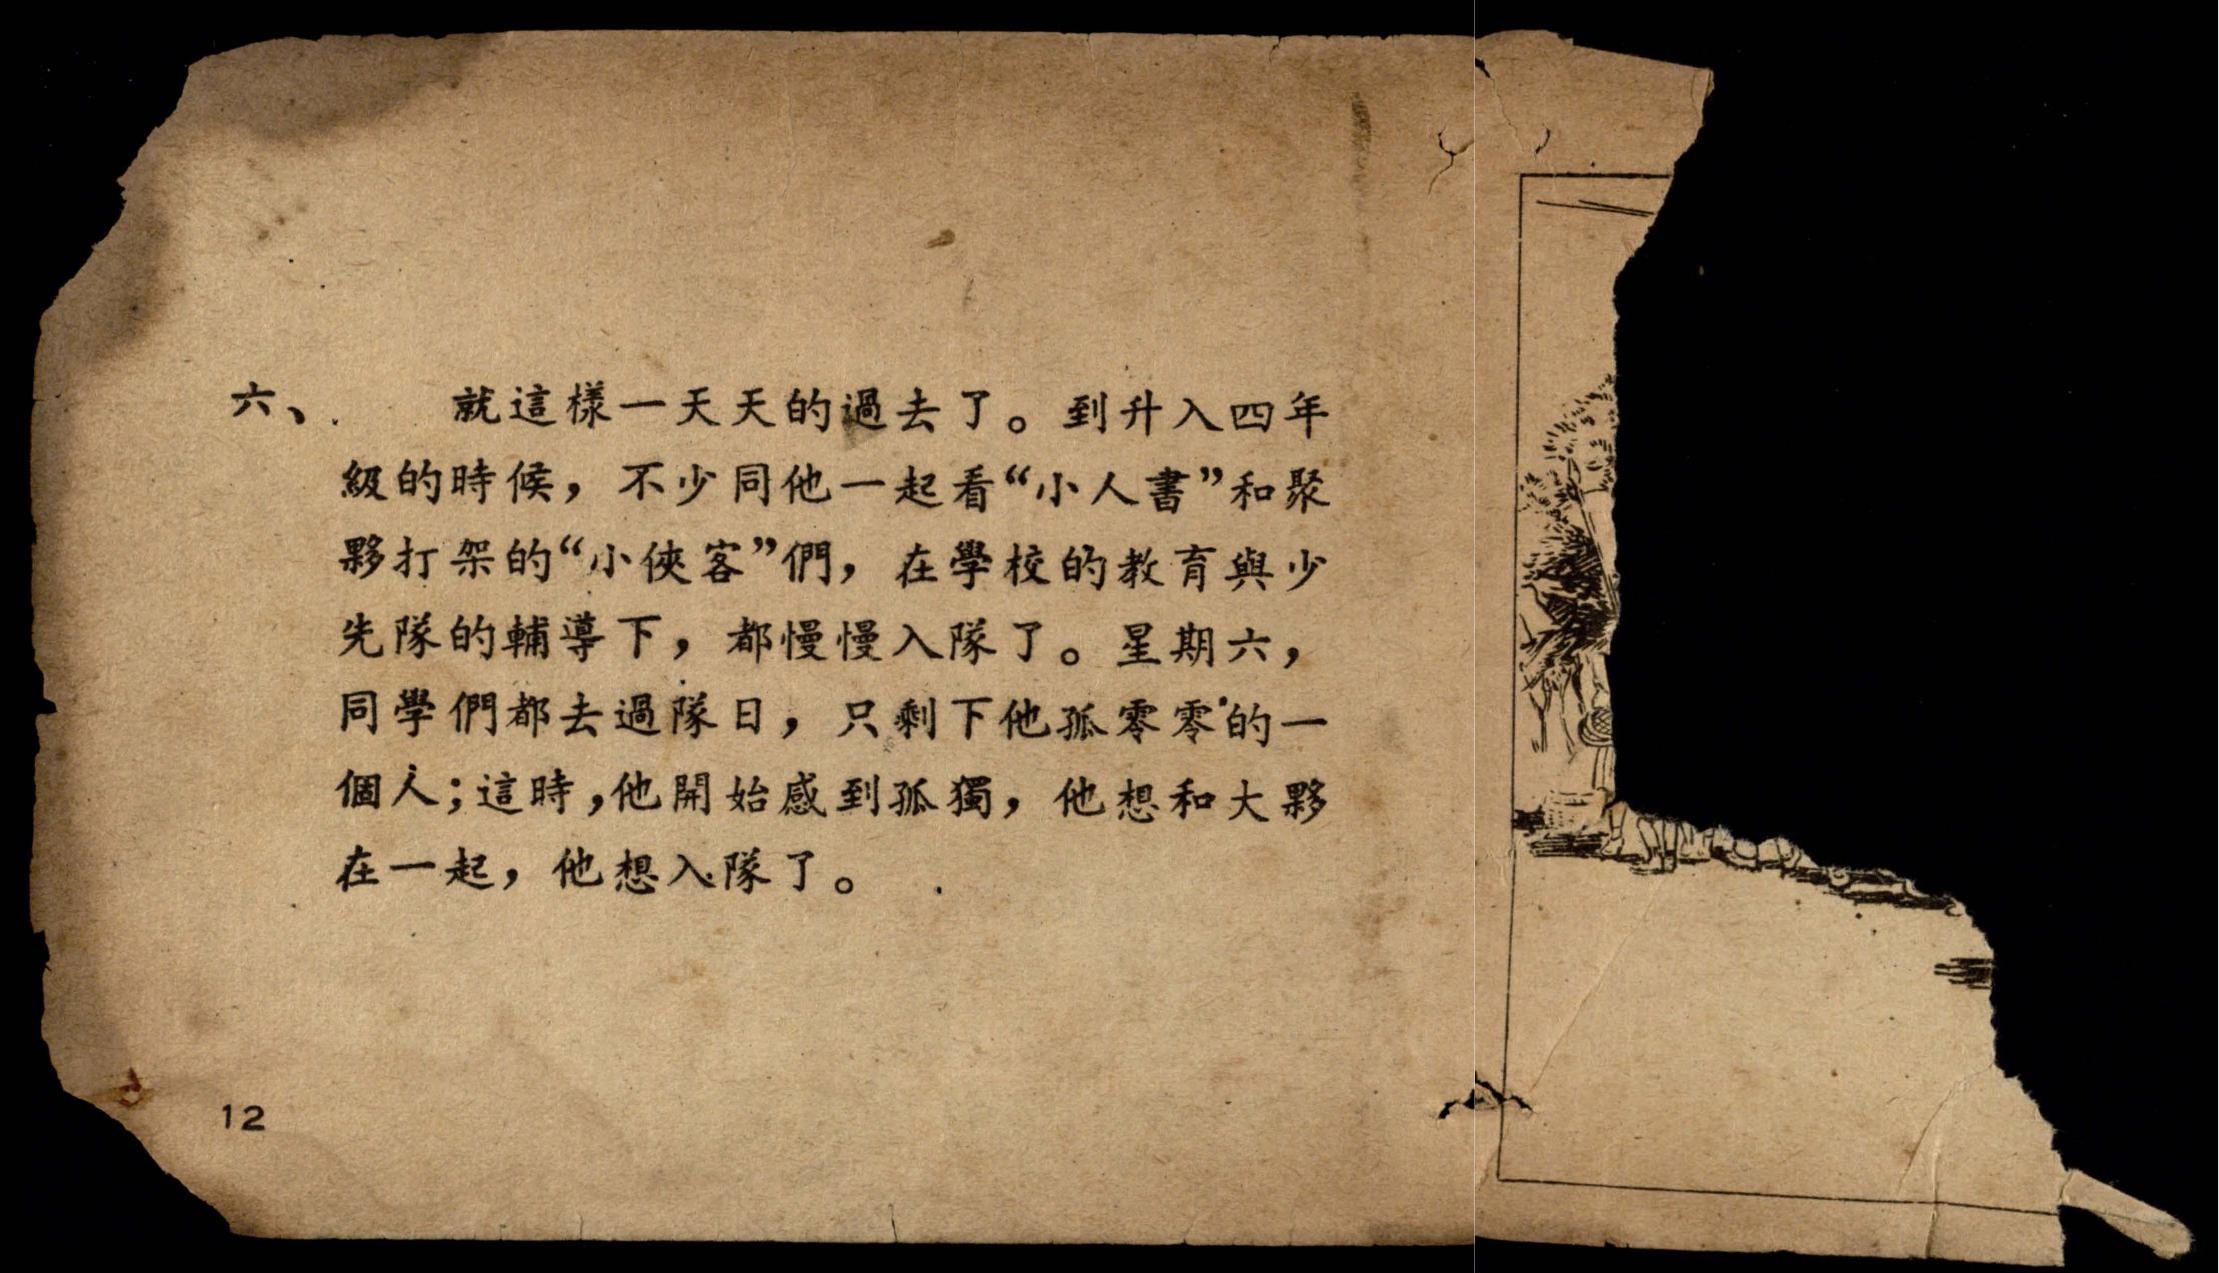 六、 就這樣一天天的過去了。到升入四年
級的時候，不少同他一起看“小人書”和聚
夥打架的“小俠客”們，在學校的教育與少
先隊的輔導下，都慢慢入隊了。星期六，
同學們都去過隊日，只剩下他孤零零的一
個人；這時，他開始感到孤獨，他想和大夥
在一起，他想入隊了。
12